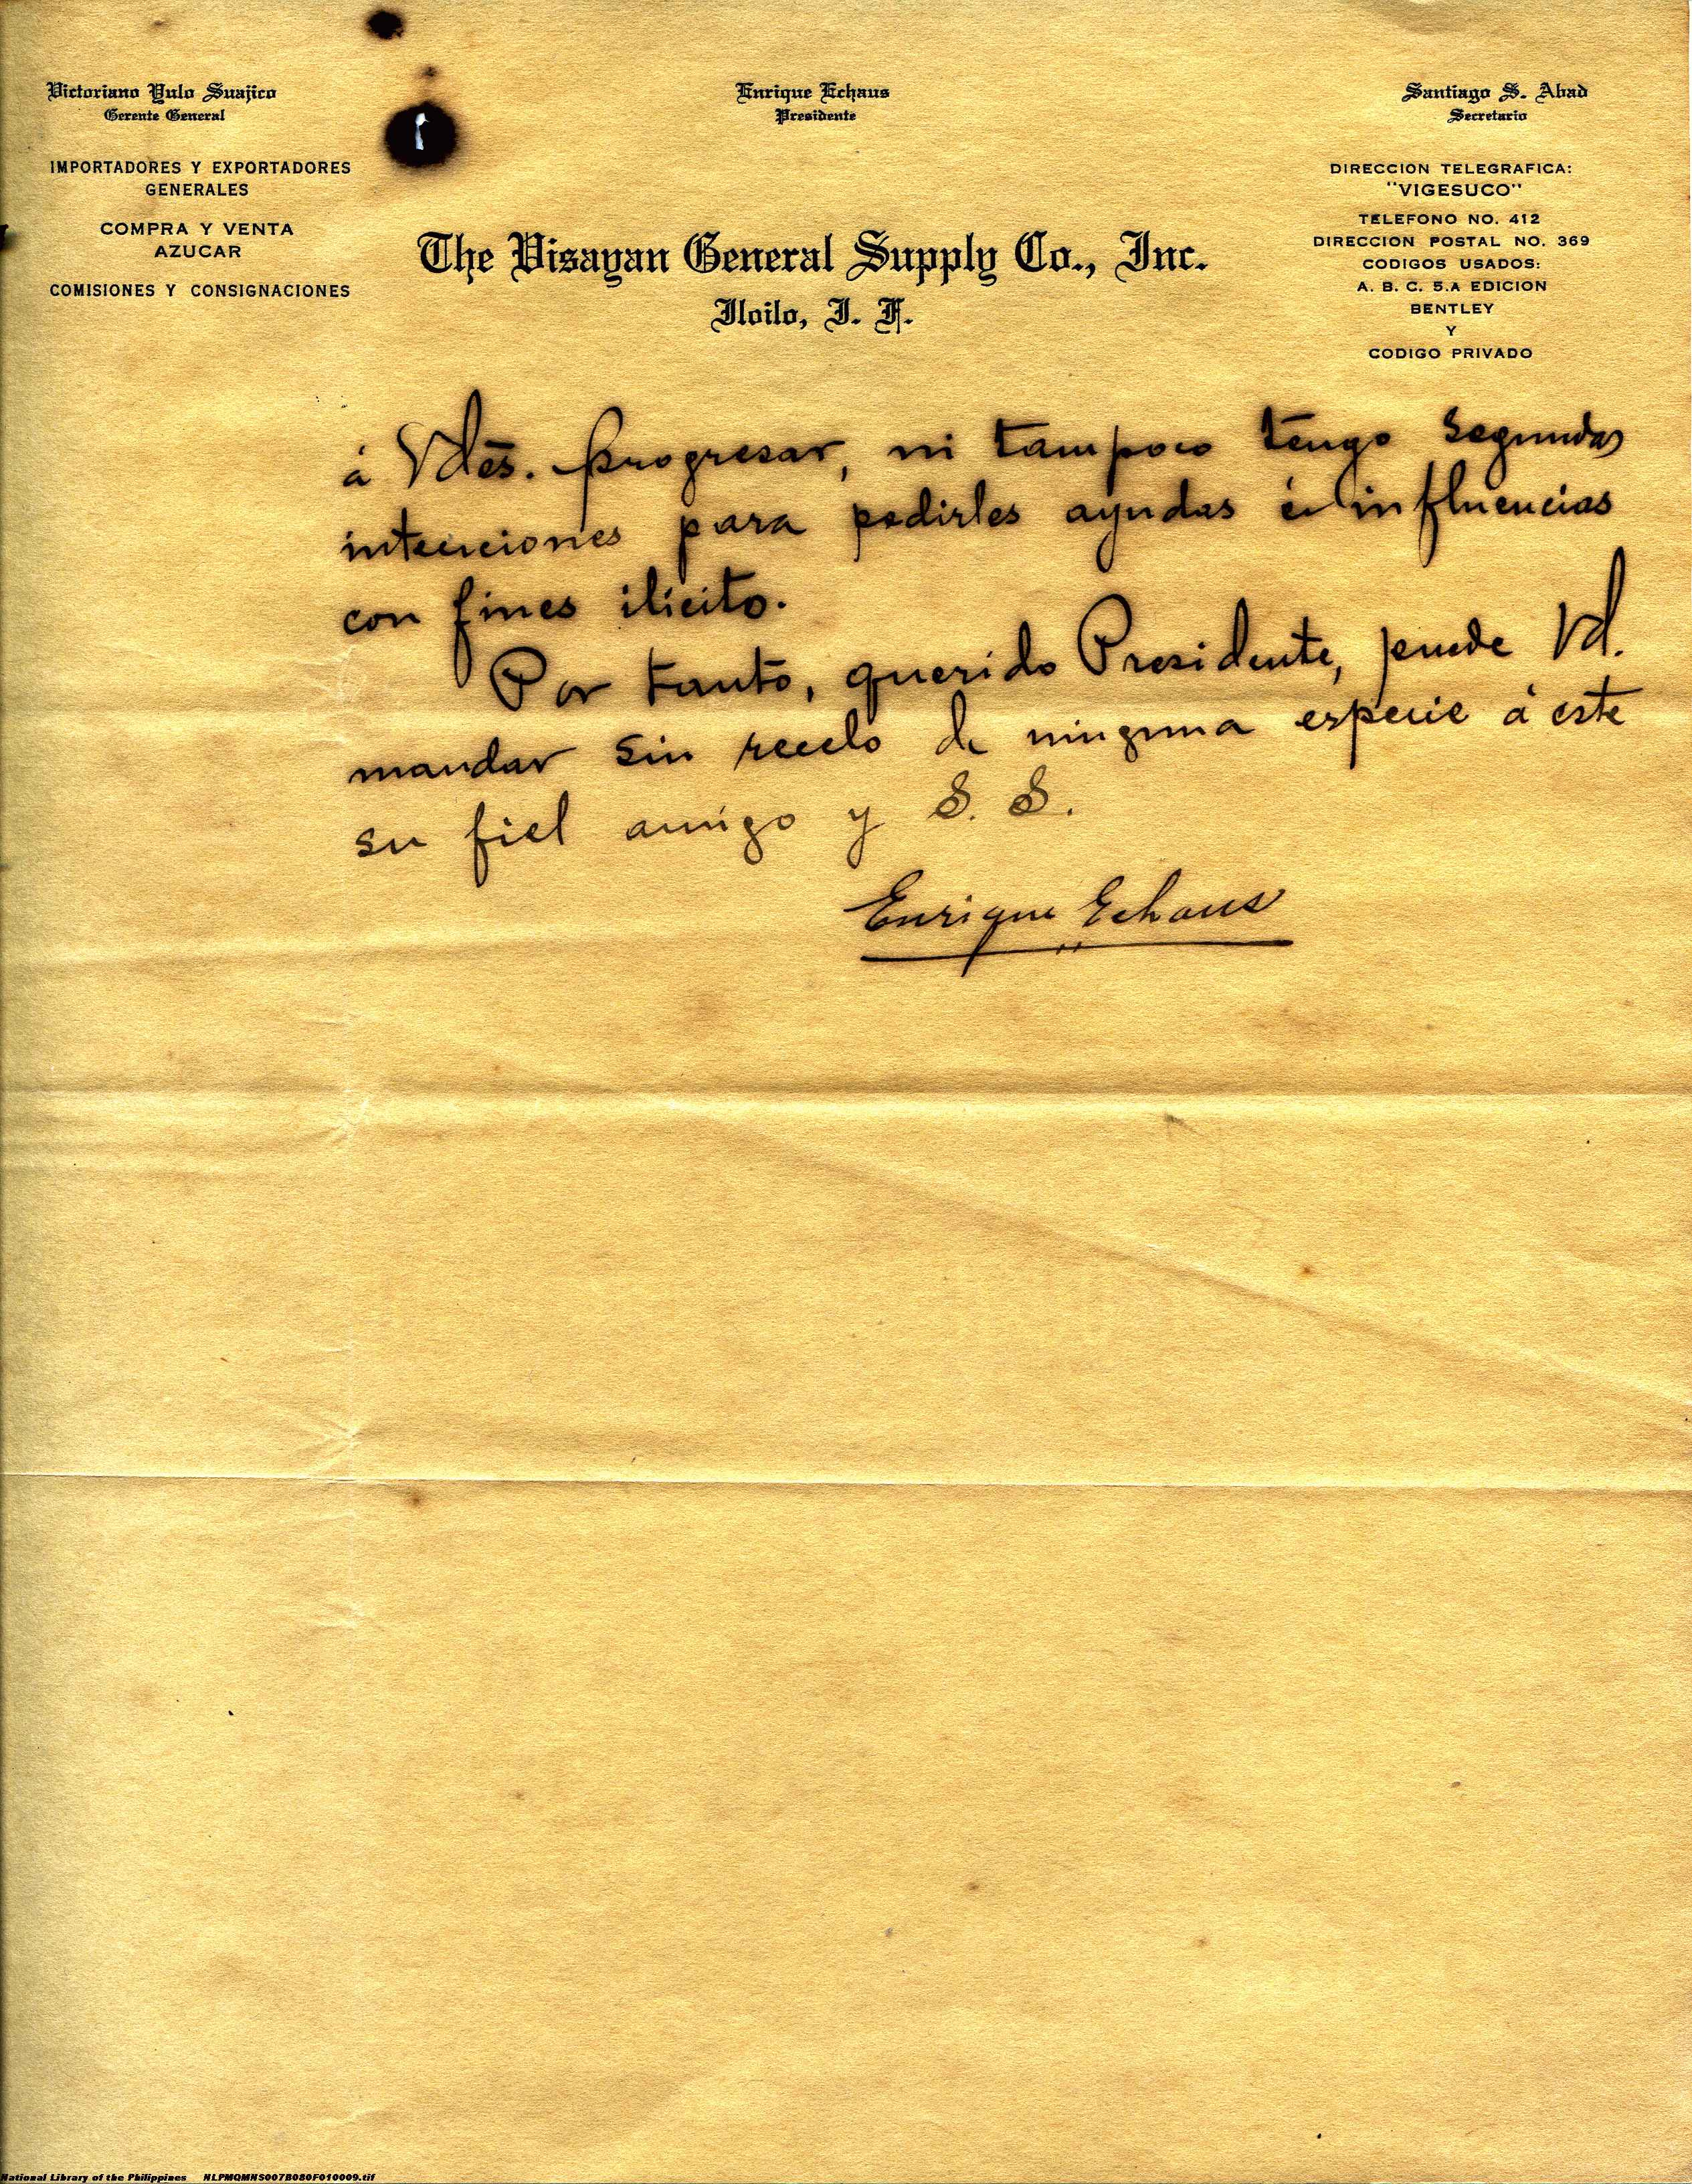 Victoriano Yulo Suajico
Gerente General
IMPORTADORES Y EXPORTADORES
GENERALES
COMPRA Y VENTA
AZUCAR
COMISIONES Y CONSIGNACIONES
Enrique Echaus
Presidente
The Visayan General Supply Co., Inc.
Iloilo, I. F.
Santiago S. Abad
Secretario
DIRECCION TELEGRAFICA:
"VIGESUCO"
TELEFONO NO. 412
DIRECCION POSTAL NO. 369
CODIGOS USADOS:
A. B. C. 5.A EDICION
BENTLEY
Y
CODIGO PRIVADO
á Vdes. progresar, ni tampoco tengo segundas
intenciones para pedirles ayudas é influencias
con fines ilicito.
Por tanto, querido Presidente, puede Vd.
mandar sin recelo de ninguna especie á este
su fiel amigo y S. S.
Enrique Echaus
National Library of the Philippines NLPMQMNS007B080F010009.tif